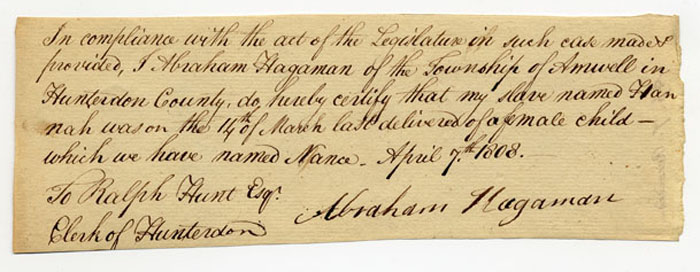 In compliance with the act of the Legislature in such case made &
provided, I Abraham Hagaman of the Township of Amwell in
Hunterdon County, do, hereby certify that my slave named Han
nah was on the 14th of March last delivered of a female child —
which we have named Nance - April 7th 1808. -
To Ralph Hunt Esqr.
Abraham Hagaman
Clerk of Hunterdon